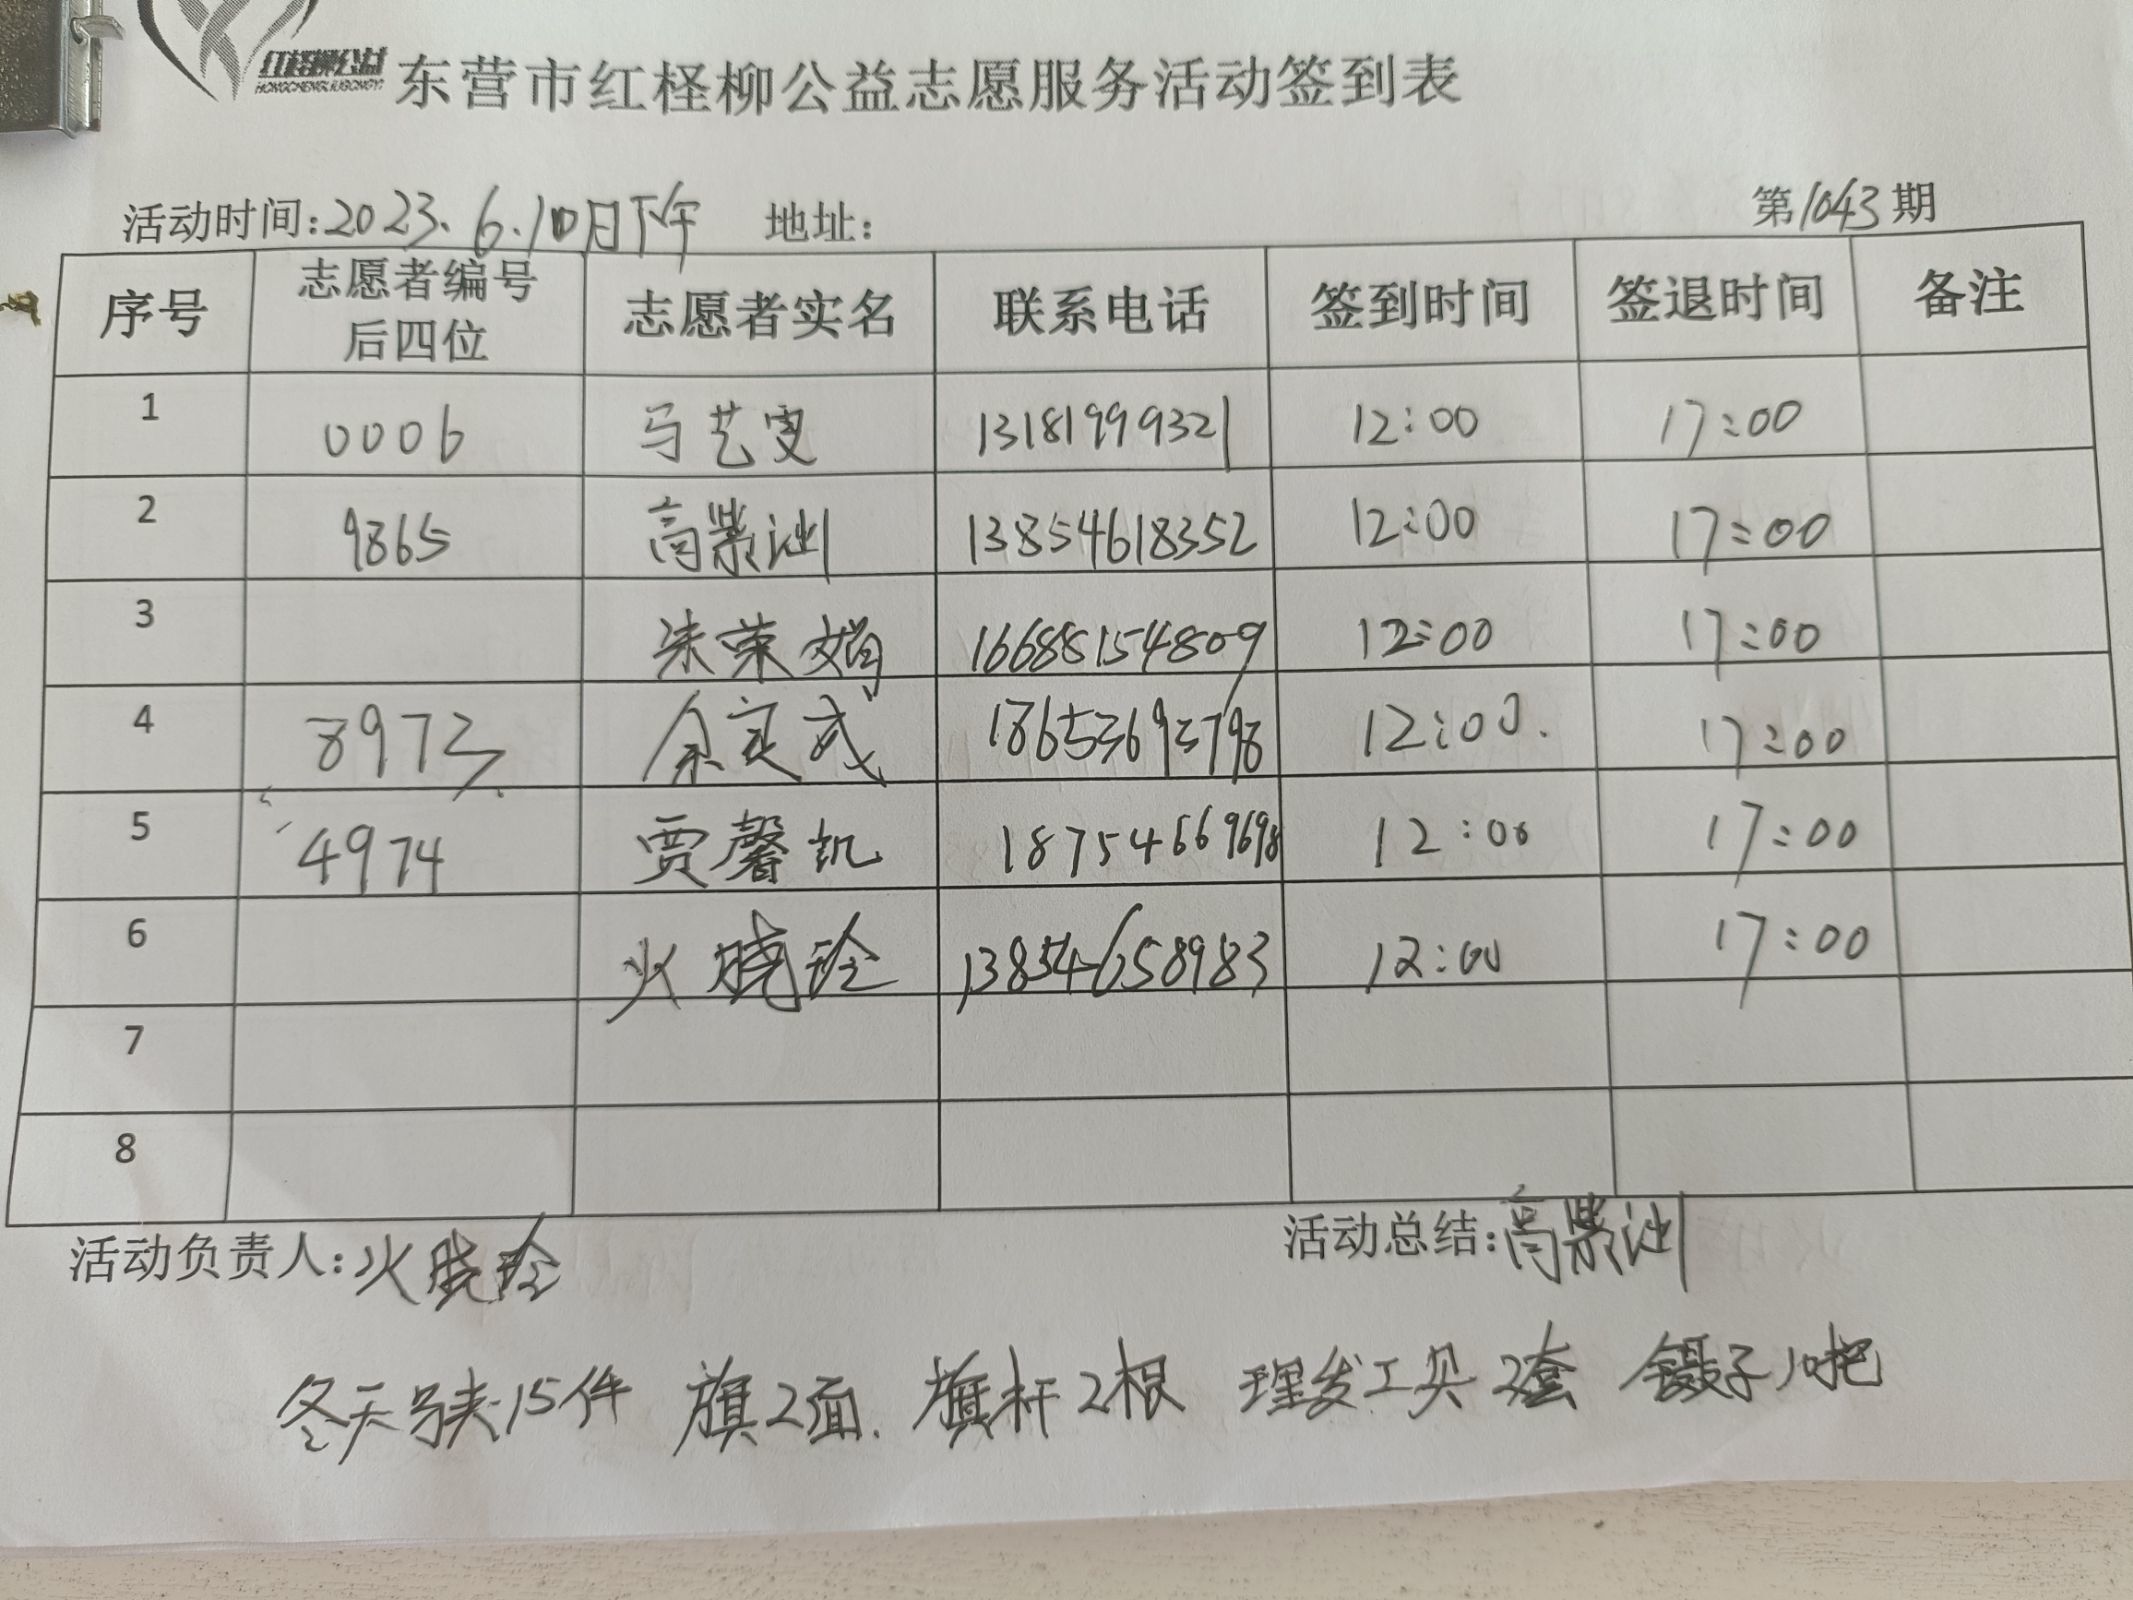 红柽柳公益
东营市红柽柳公益志愿服务活动签到表
活动时间:2023.6.10日下午 地址: 第1043期
序号 志愿者编号后四位 志愿者实名 联系电话 签到时间 签退时间 备注
1 0006 马艺 13181999321 12:00 17:00
2 9865 高 13854618352 12:00 17:00
3 朱荣娟 16688154809 12:00 17:00
4 8973 余定成 18653693798 12:00. 17:00
5 4974 贾馨凯 18754669698 12:00 17:00
6 火晓玲 13854658983 12:00 17:00
7
8
活动负责人:火晓玲 活动总结:高
冬天马夹15件 旗2面. 旗杆2根 理发工具2套 镊子10把